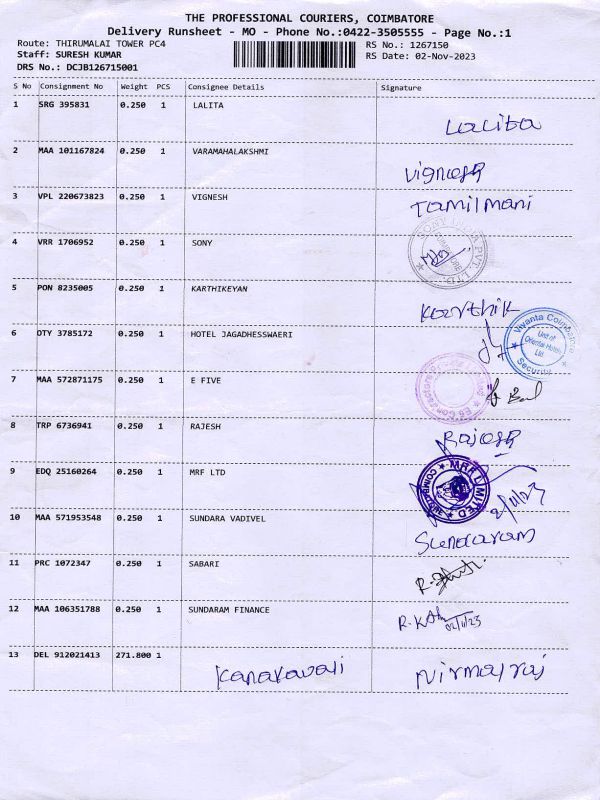 THE PROFESSIONAL COURIERS, COIMBATORE
Delivery Runsheet - MO - Phone No.:0422-3505555 - Page No.:1
Route: THIRUMALAI TOWER PC4 RS No.: 1267150
Staff: SURESH KUMAR RS Date: 02-Nov-2023
DRS No.: DCJB126715001
S No Consignment No Weight PCS Consignee Details Signature
1 SRG 395831 0.250 1 LALITA
Lalita
2 MAA 101167824 0.250 1 VARAMAHALAKSHMI
Vignesh
3 VPL 220673823 0.250 1 VIGNESH Tamilmani
4 VRR 1706952 0.250 1 SONY
5 PON 8235005 0.250 1 KARTHIKEYAN
Karthik
6 OTY 3785172 0.250 1 HOTEL JAGADHESSWAERI
Vivanta Coimbatore
Unit of
Oriental Hotels
Ltd
Security
7 MAA 572871175 0.250 1 E FIVE
8 TRP 6736941 0.250 1 RAJESH
Rajesh
9 EDQ 25160264 0.250 1 MRF LTD
MRF LIMITED
2/11/23
10 MAA 571953548 0.250 1 SUNDARA VADIVEL
Sundaram
11 PRC 1072347 0.250 1 SABARI
12 MAA 106351788 0.250 1 SUNDARAM FINANCE
02/11/23
13 DEL 912021413 271.800 1 Kanakavali Nirmalraj